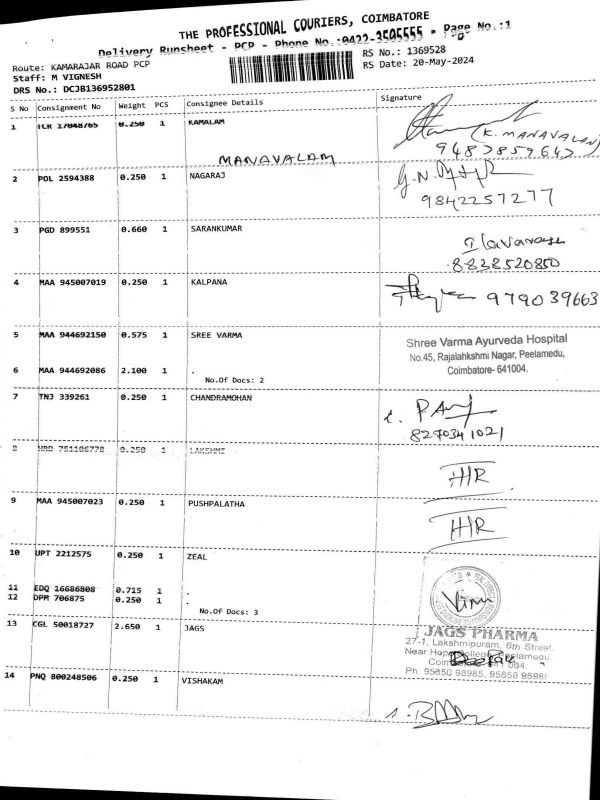 THE PROFESSIONAL COURIERS, COIMBATORE
Delivery Runsheet - PCP - Phone No.:0422-3505555 - Page No.:1
Route: KAMARAJAR ROAD PCP
Staff: M VIGNESH
DRS No.: DCJB136952801
RS No.: 1369528
RS Date: 20-May-2024
S No Consignment No Weight PCS Consignee Details Signature
1 17048765 0.250 1 KAMALAM
(K. MANAVALAN)
MANAVALAM
2 POL 2594388 0.250 1 NAGARAJ
9842257277
3 PGD 899551 0.660 1 SARANKUMAR
8838520850
4 MAA 945007019 0.250 1 KALPANA
979039663
5 MAA 944692150 0.575 1 SREE VARMA
Shree Varma Ayurveda Hospital
No.45, Rajalahkshmi Nagar, Peelamedu,
Coimbatore- 641004.
6 MAA 944692086 2.100 1 .
No.Of Docs: 2
7 TNJ 339261 0.250 1 CHANDRAMOHAN
8 751106778 0.250 1 LAKSHMI
H/R
9 MAA 945007023 0.250 1 PUSHPALATHA
H/R
10 UPT 2212575 0.250 1 ZEAL
11 EDQ 16686808 0.715 1 .
12 DPM 706875 0.250 1 .
No.Of Docs: 3
13 CGL 50018727 2.650 1 JAGS
JAGS PHARMA
27-1, Lakshmipuram, 6th Street,
Near Peelamedu
004.
Ph: 95850 98985, 95850
14 PNQ 800248506 0.250 1 VISHAKAM